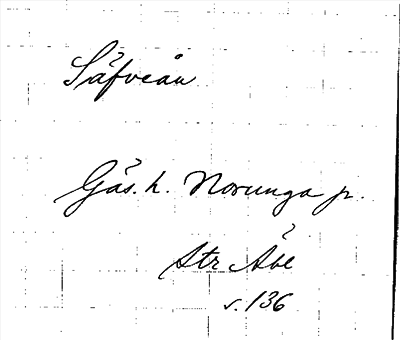 Säfveån
Gäs. h. Norunga p.
Str Åbe
s. 136